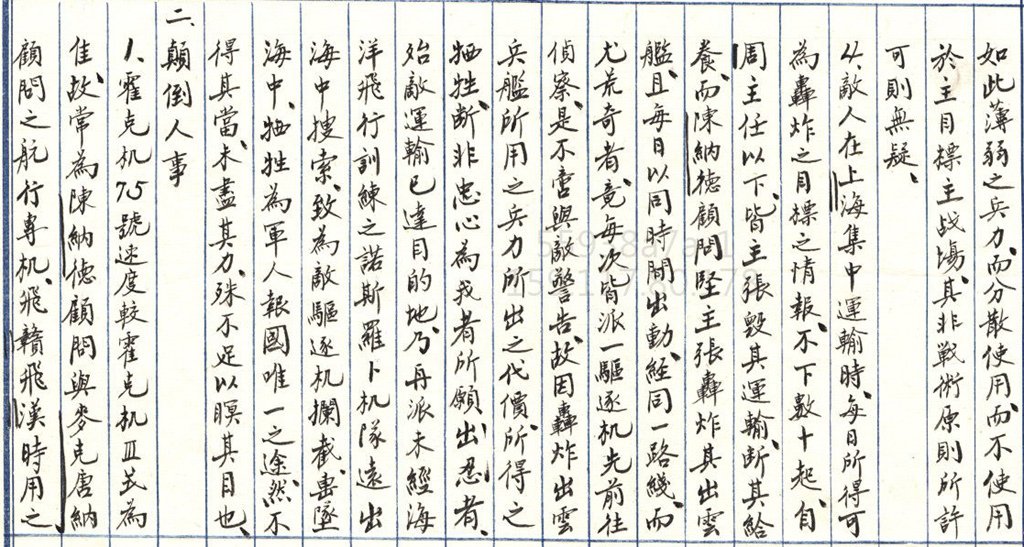 如此薄弱之兵力、而分散使用、而不使用
於主目標主战場、其非戰術原則所許
可則無疑、
4、敵人在上海集中運輸時、每日所得可
為轟炸之目標之情報、不下數十起、自
周主任以下、皆主張毀其運輸、断其給
養、而陳納德顧問堅主張轟炸其出雲
艦、且每每日以同時間出動、經同一路綫、而
尤荒奇者、竟每次皆派一驅逐机先前往
偵察、是不啻與敵警告、故因轟炸出雲
兵艦所用之兵力所出之代價、所得之
牺牲、断非忠心為我者所願出、忍者、
始敵運輸已達目的地、乃再派未經海
洋飛行訓練之諾斯羅卜机隊遠出
海中搜索、致為敵驅逐机攔截、墜
海中、牺牲為軍人報國唯一之途、然不
得其當、未盡其力、殊不足以瞑其目也、
二、顛倒人事
1、霍克机75號速度較霍克机III式為
佳、故常為陳納德顧問與麥克唐納
顧問之航行專机、飛贛飛漢時用之